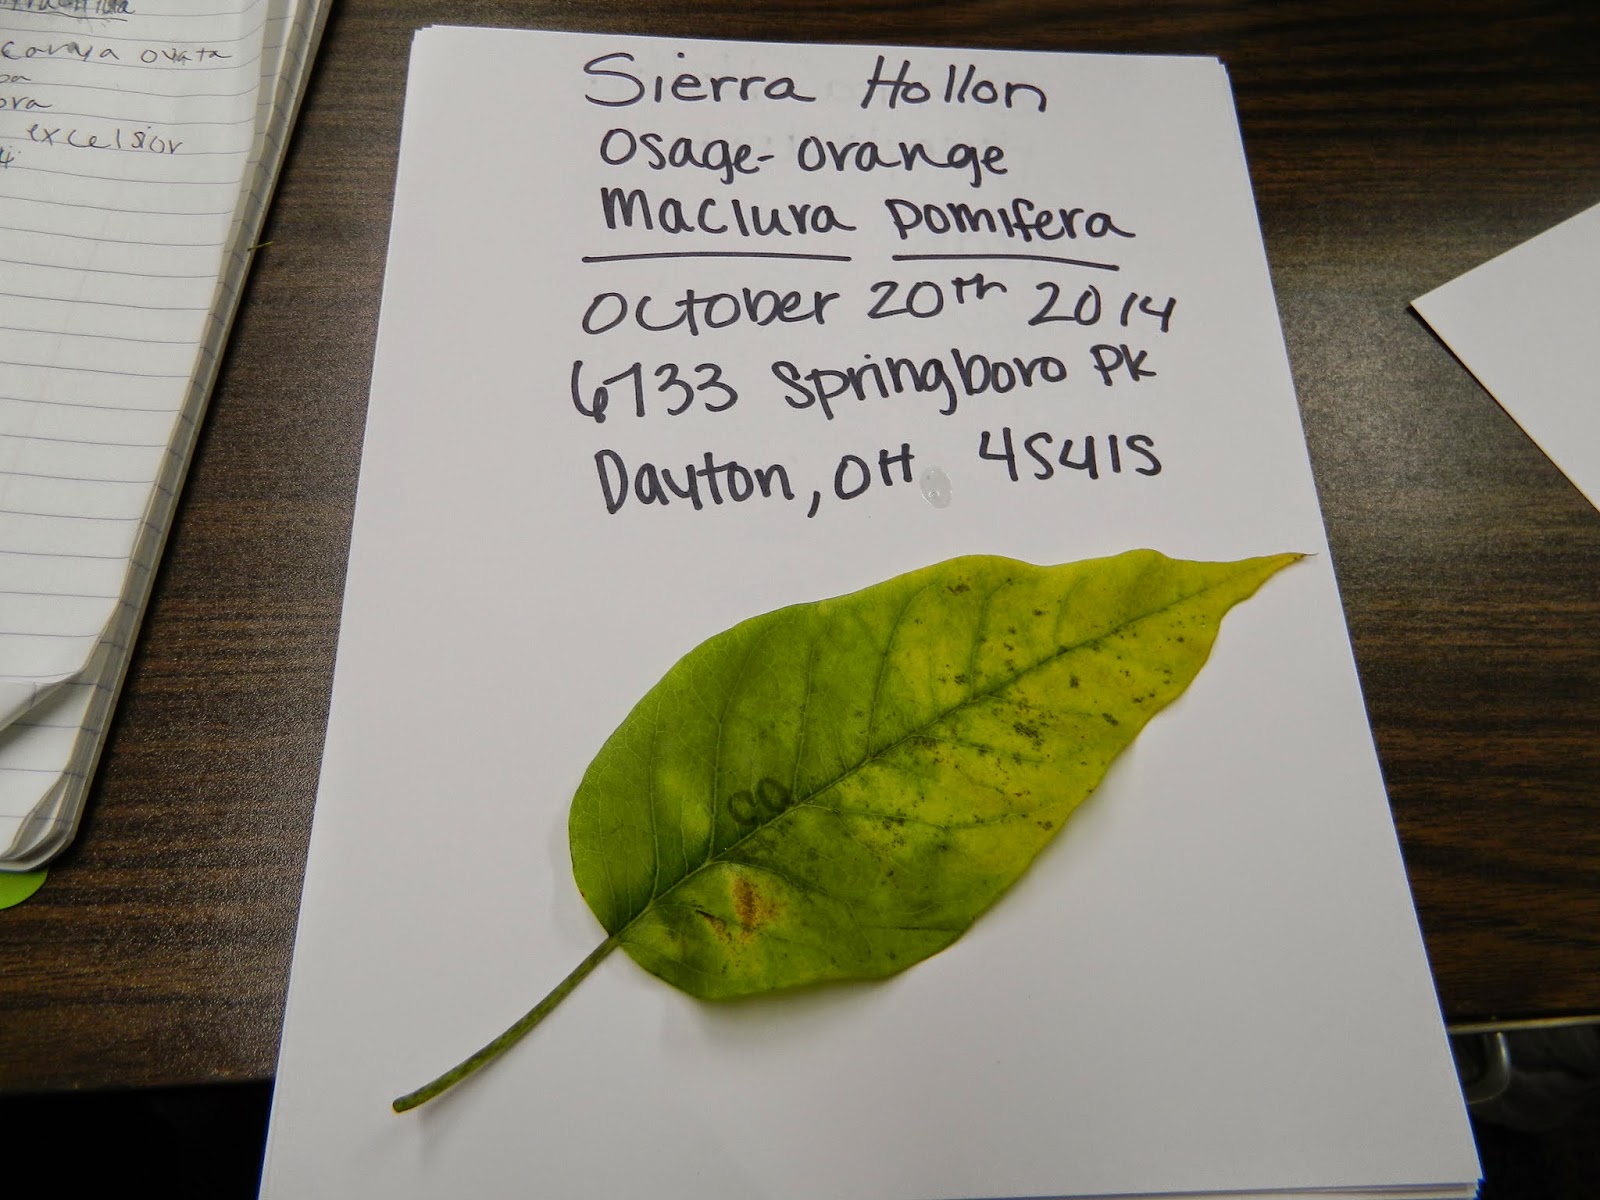 carya ovata
excelsior
Sierra Hollon
Osage-orange
Maclura pomifera
October 20th 2014
6733 Springboro Pk
Dayton, OH 45415